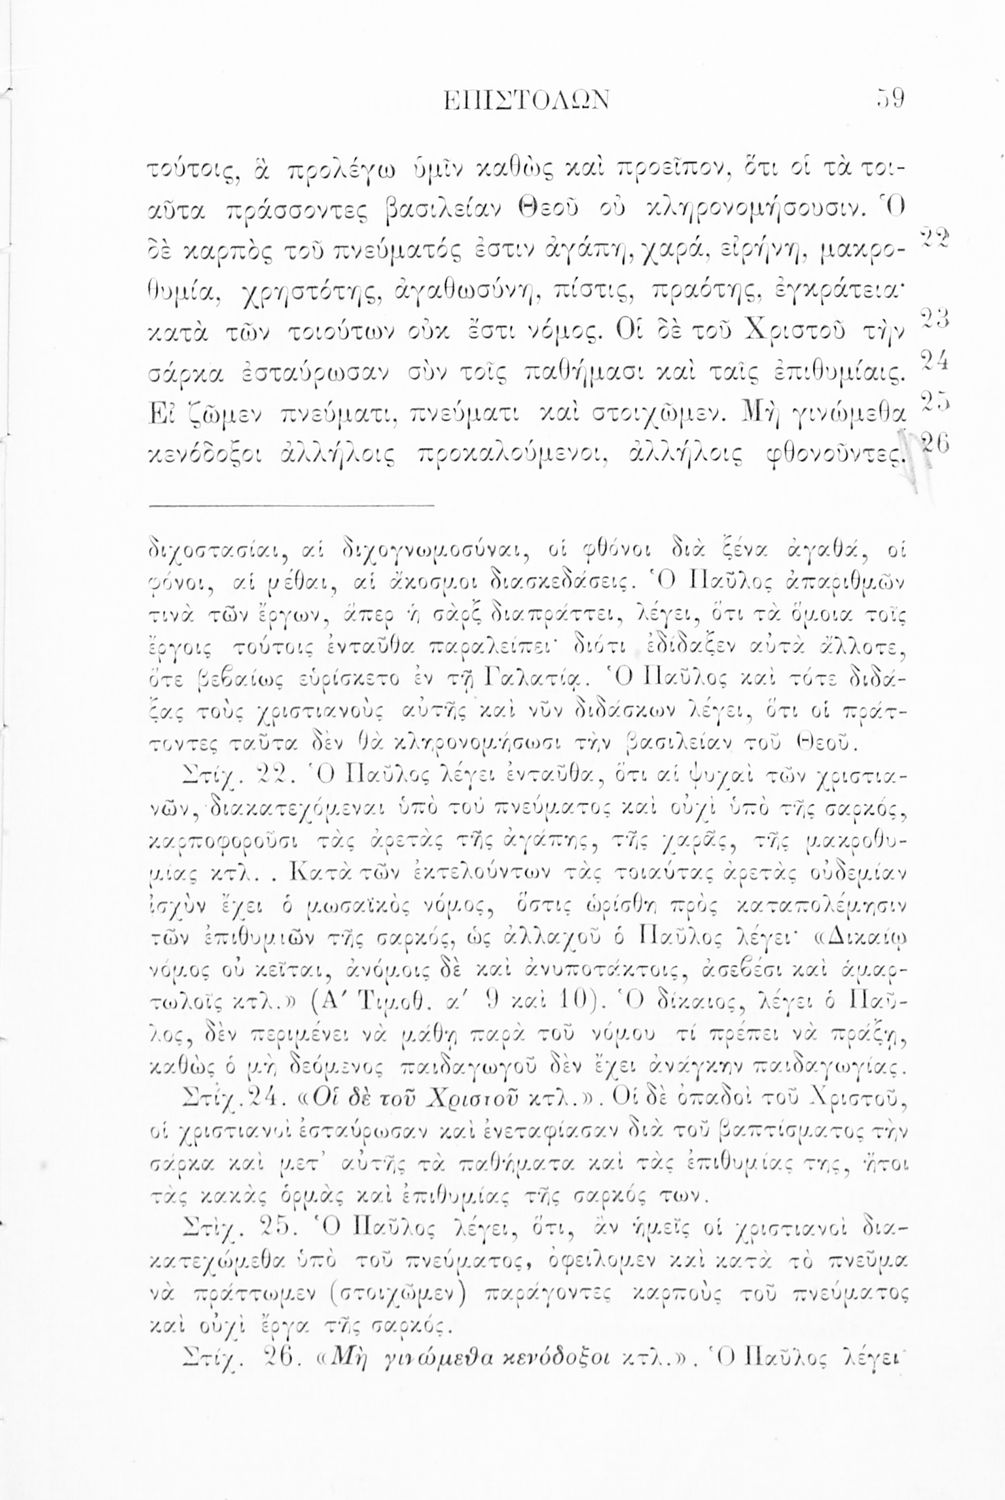 ΕΠΙΣΤΟΛΩΝ 59
τούτοις, ἃ προλέγω ὑμῖν καθὼς καὶ προεῖπον, ὅτι οἱ τὰ τοι-
αῦτα πράσσοντες βασιλείαν Θεοῦ οὐ κληρονομήσουσιν. Ὁ
δὲ καρπὸς τοῦ πνεύματός ἐστιν ἀγάπη, χαρά, εἰρήνη, μακρο- 22
θυμία, χρηστότης, ἀγαθωσύνη, πίστις, πραότης, ἐγκράτεια·
κατὰ τῶν τοιούτων οὐκ ἔστι νόμος. Οἱ δὲ τοῦ Χριστοῦ τὴν 23
σάρκα ἐσταύρωσαν σὺν τοῖς παθήμασι καὶ ταῖς ἐπιθυμίαις. 24
Εἰ ζῶμεν πνεύματι, πνεύματι καὶ στοιχῶμεν. Μὴ γινώμεθα 25
κενόδοξοι ἀλλήλοις προκαλούμενοι, ἀλλήλοις φθονοῦντες. 26
διχοστασίαι, αἱ διχογνωμοσύναι, οἱ φθόνοι διὰ ξένα ἀγαθά, οἱ
φόνοι, αἱ μέθαι, αἱ ἄκοσμοι διασκεδάσεις. Ὁ Παῦλος ἀπαριθμῶν
τινὰ τῶν ἔργων, ἅπερ ἡ σὰρξ διαπράττει, λέγει, ὅτι τὰ ὅμοια τοῖς
ἔργοις τούτοις ἐνταῦθα παραλείπει· διότι ἐδίδαξεν αὐτὰ ἄλλοτε,
ὅτε βεβαίως εὑρίσκετο ἐν τῇ Γαλατίᾳ. Ὁ Παῦλος καὶ τότε διδά-
ξας τοὺς χριστιανοὺς αὐτῆς καὶ νῦν διδάσκων λέγει, ὅτι οἱ πράτ-
τοντες ταῦτα δὲν θὰ κληρονομήσωσι τὴν βασιλείαν τοῦ Θεοῦ.
Στίχ. 22. Ὁ Παῦλος λέγει ἐνταῦθα, ὅτι αἱ ψυχαὶ τῶν χριστια-
νῶν, διακατεχόμεναι ὑπὸ τοῦ πνεύματος καὶ οὐχὶ ὑπὸ τῆς σαρκός,
καρποφοροῦσι τὰς ἀρετὰς τῆς ἀγάπης, τῆς χαρᾶς, τῆς μακροθυ-
μίας κτλ. . Κατὰ τῶν ἐκτελούντων τὰς τοιαύτας ἀρετὰς οὐδεμίαν
ἰσχὺν ἔχει ὁ μωσαϊκὸς νόμος, ὅστις ὡρίσθη πρὸς καταπολέμησιν
τῶν ἐπιθυμιῶν τῆς σαρκός, ὡς ἀλλαχοῦ ὁ Παῦλος λέγει· «Δικαίῳ
νόμος οὐ κεῖται, ἀνόμοις δὲ καὶ ἀνυποτάκτοις, ἀσεβέσι καὶ ἁμαρ-
τωλοῖς κτλ.» (Α′ Τιμοθ. α′ 9 καὶ 10). Ὁ δίκαιος, λέγει ὁ Παῦ-
λος, δὲν περιμένει νὰ μάθῃ παρὰ τοῦ νόμου τί πρέπει νὰ πράξῃ,
καθὼς ὁ μὴ δεόμενος παιδαγωγοῦ δὲν ἔχει ἀνάγκην παιδαγωγίας.
Στίχ. 24. «Οἱ δὲ τοῦ Χριστοῦ κτλ.». Οἱ δὲ ὀπαδοὶ τοῦ Χριστοῦ,
οἱ χριστιανοὶ ἐσταύρωσαν καὶ ἐνεταφίασαν διὰ τοῦ βαπτίσματος τὴν
σάρκα καὶ μετ᾿ αὐτῆς τὰ παθήματα καὶ τὰς ἐπιθυμίας της, ἤτοι
τὰς κακὰς ὁρμὰς καὶ ἐπιθυμίας τῆς σαρκός των.
Στίχ. 25. Ὁ Παῦλος λέγει, ὅτι, ἂν ἡμεῖς οἱ χριστιανοὶ δια-
κατεχώμεθα ὑπὸ τοῦ πνεύματος, ὀφείλομεν καὶ κατὰ τὸ πνεῦμα
νὰ πράττωμεν (στοιχῶμεν) παράγοντες καρποὺς τοῦ πνεύματος
καὶ οὐχὶ ἔργα τῆς σαρκός.
Στίχ. 26. «Μὴ γινώμεθα κενόδοξοι κτλ.». Ὁ Παῦλος λέγει·